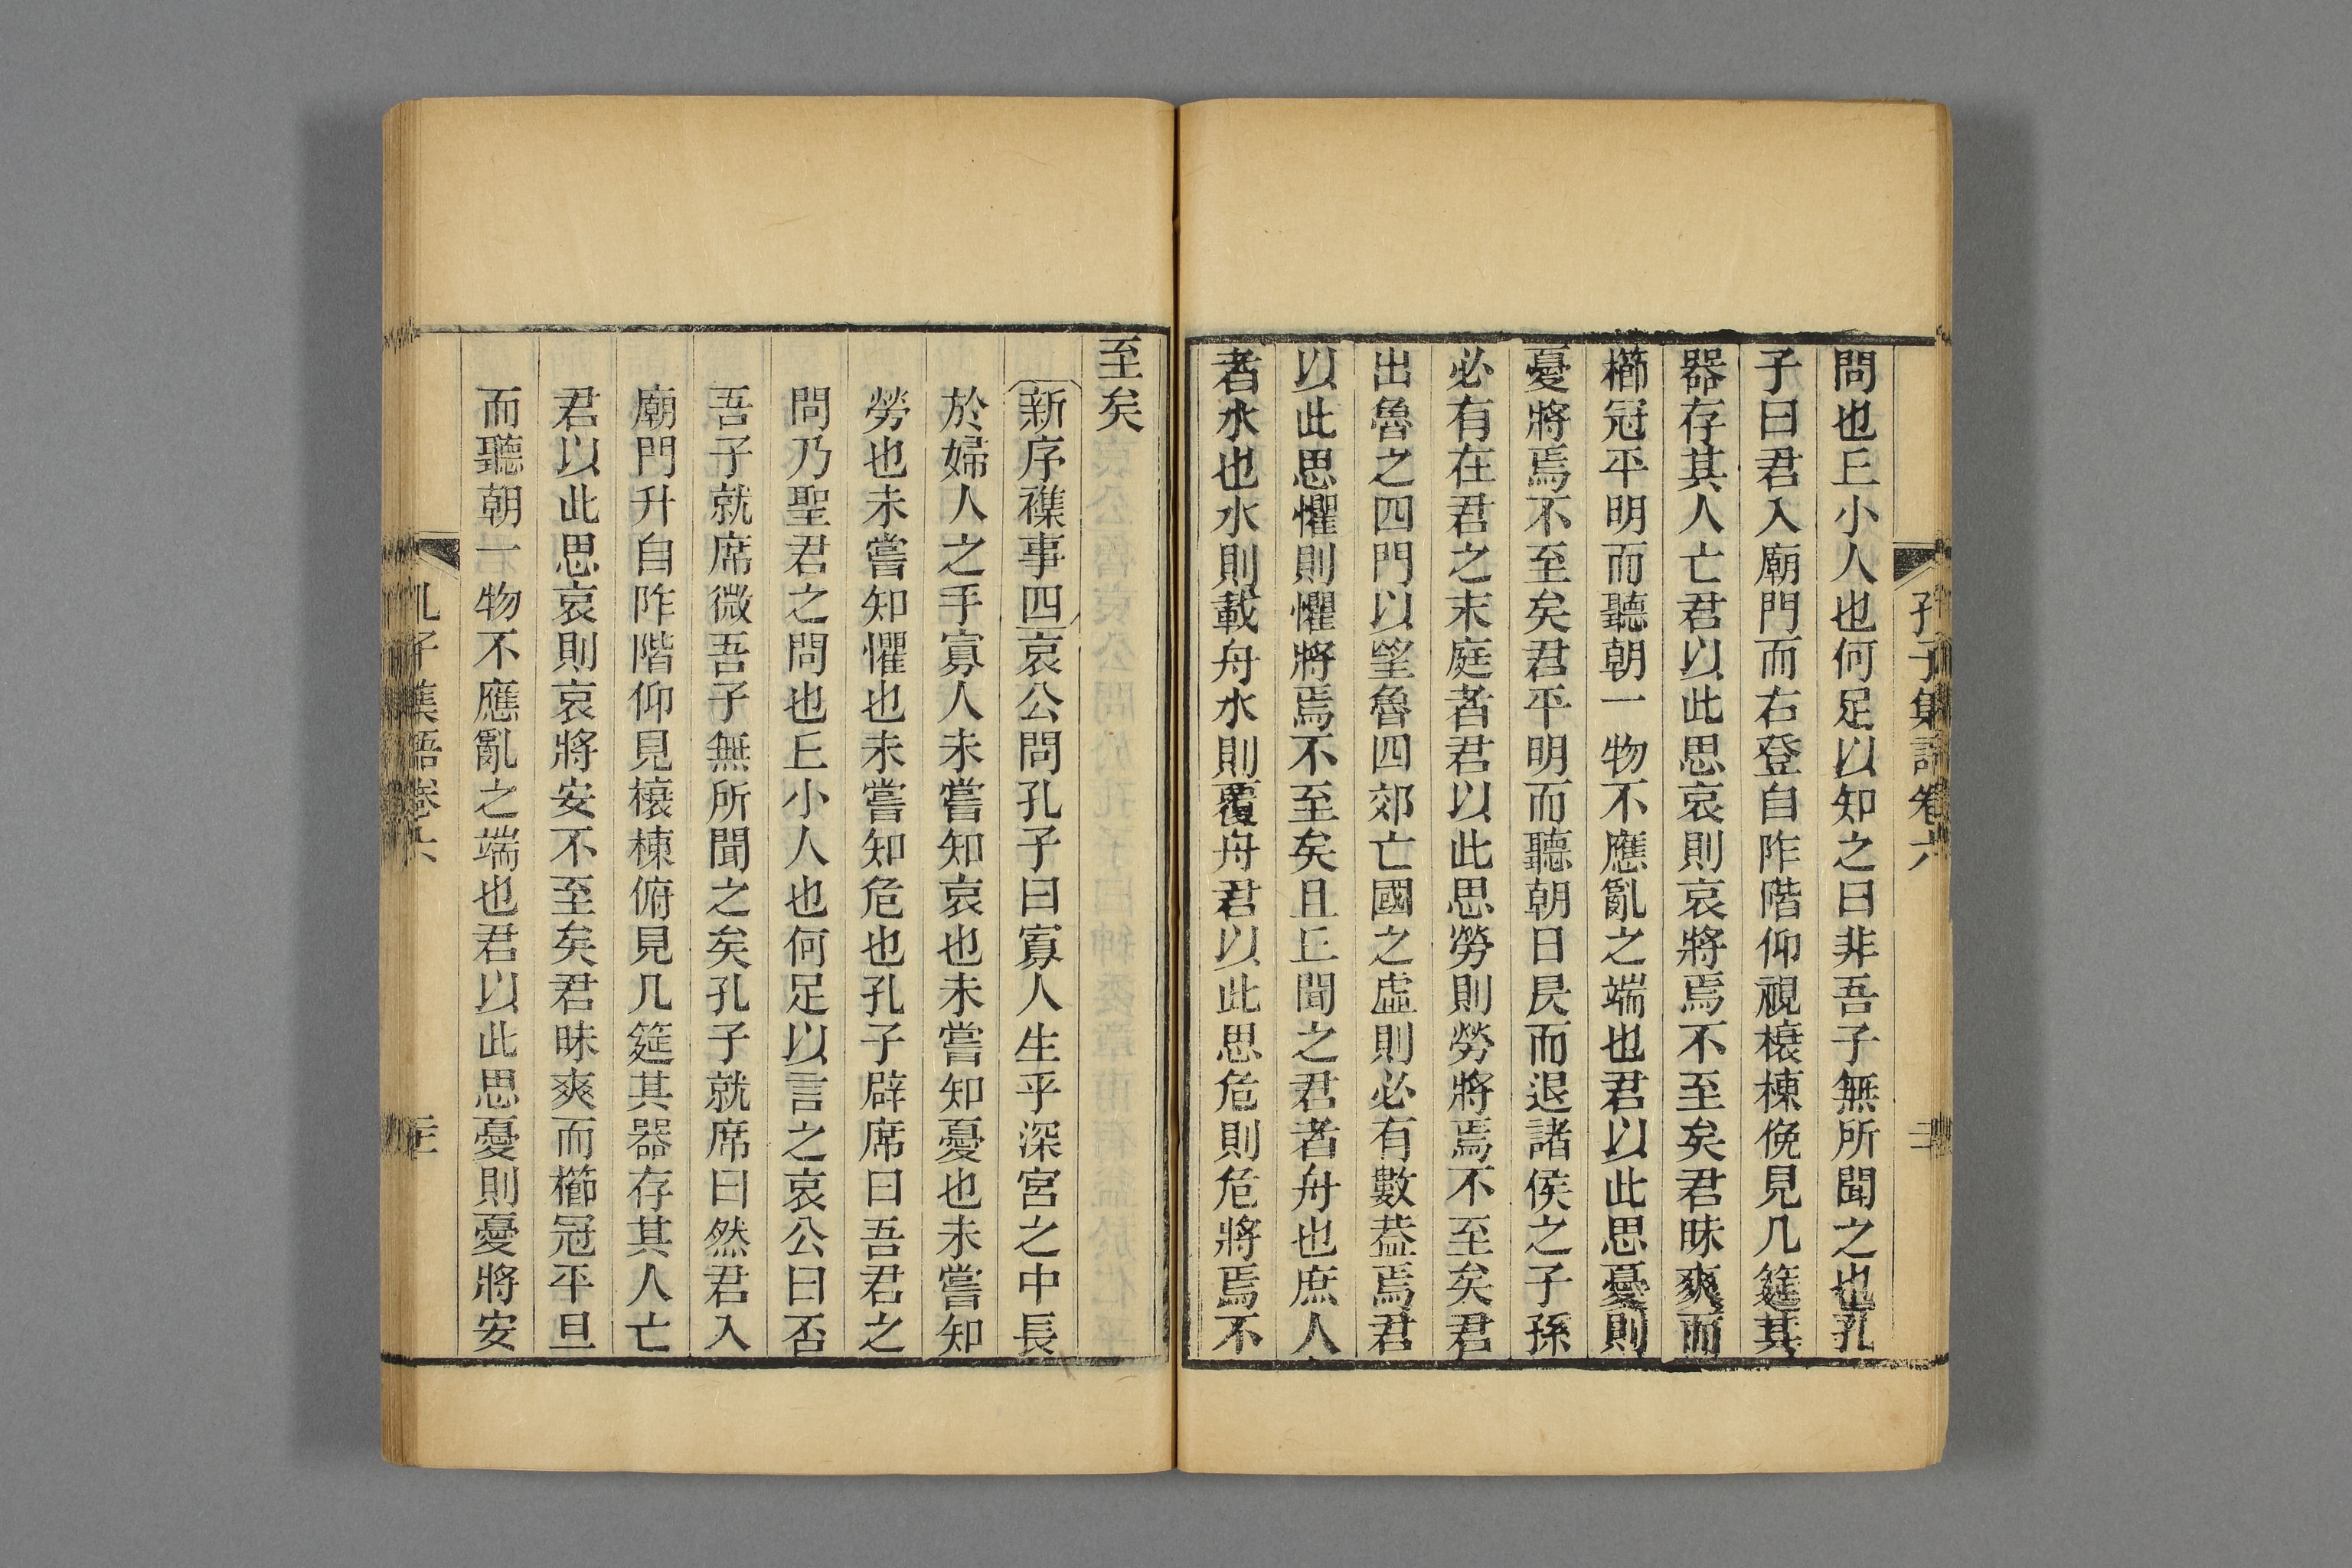 孔子集語卷六 二
問也丘小人也何足以知之曰非吾子無所聞之也孔
子曰君入廟門而右登自阼階仰視榱棟俛見几筵其
器存其人亡君以此思哀則哀將焉不至矣君昧爽而
櫛冠平明而聽朝一物不應亂之端也君以此思憂則
憂將焉不至矣君平明而聽朝日昃而退諸侯之子孫
必有在君之末庭者君以此思勞則勞將焉不至矣君
出魯之四門以望魯四郊亡國之虛則必有數葢焉君
以此思懼則懼將焉不至矣且丘聞之君者舟也庶人
者水也水則載舟水則覆舟君以此思危則危將焉不
至矣
新序襍事四哀公問孔子曰寡人生乎深宮之中長
於婦人之手寡人未嘗知哀也未嘗知憂也未嘗知
勞也未嘗知懼也未嘗知危也孔子辟席曰吾君之
問乃聖君之問也丘小人也何足以言之哀公曰否
吾子就席微吾子無所聞之矣孔子就席曰然君入
廟門升自阼階仰見榱棟俯見几筵其器存其人亡
君以此思哀則哀將安不至矣君昧爽而櫛冠平旦
而聽朝一物不應亂之端也君以此思憂則憂將安
孔子集語卷六 三